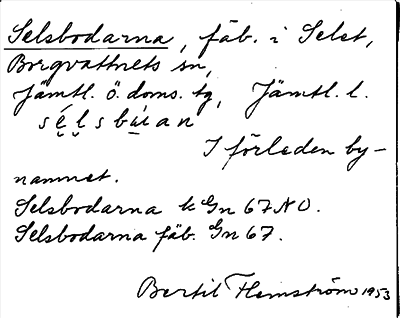 Selsbodarna, fäb. i Selet,
Borgvattnets sn,
Jämtl. ö. doms. tg, Jämtl. l.
sé̬l̬sbúan
I förleden by-
namnet.
Selsbodarna k Gn 67 NO.
Selsbodarna fäb. Gn 67.
Bertil Flemström 1953